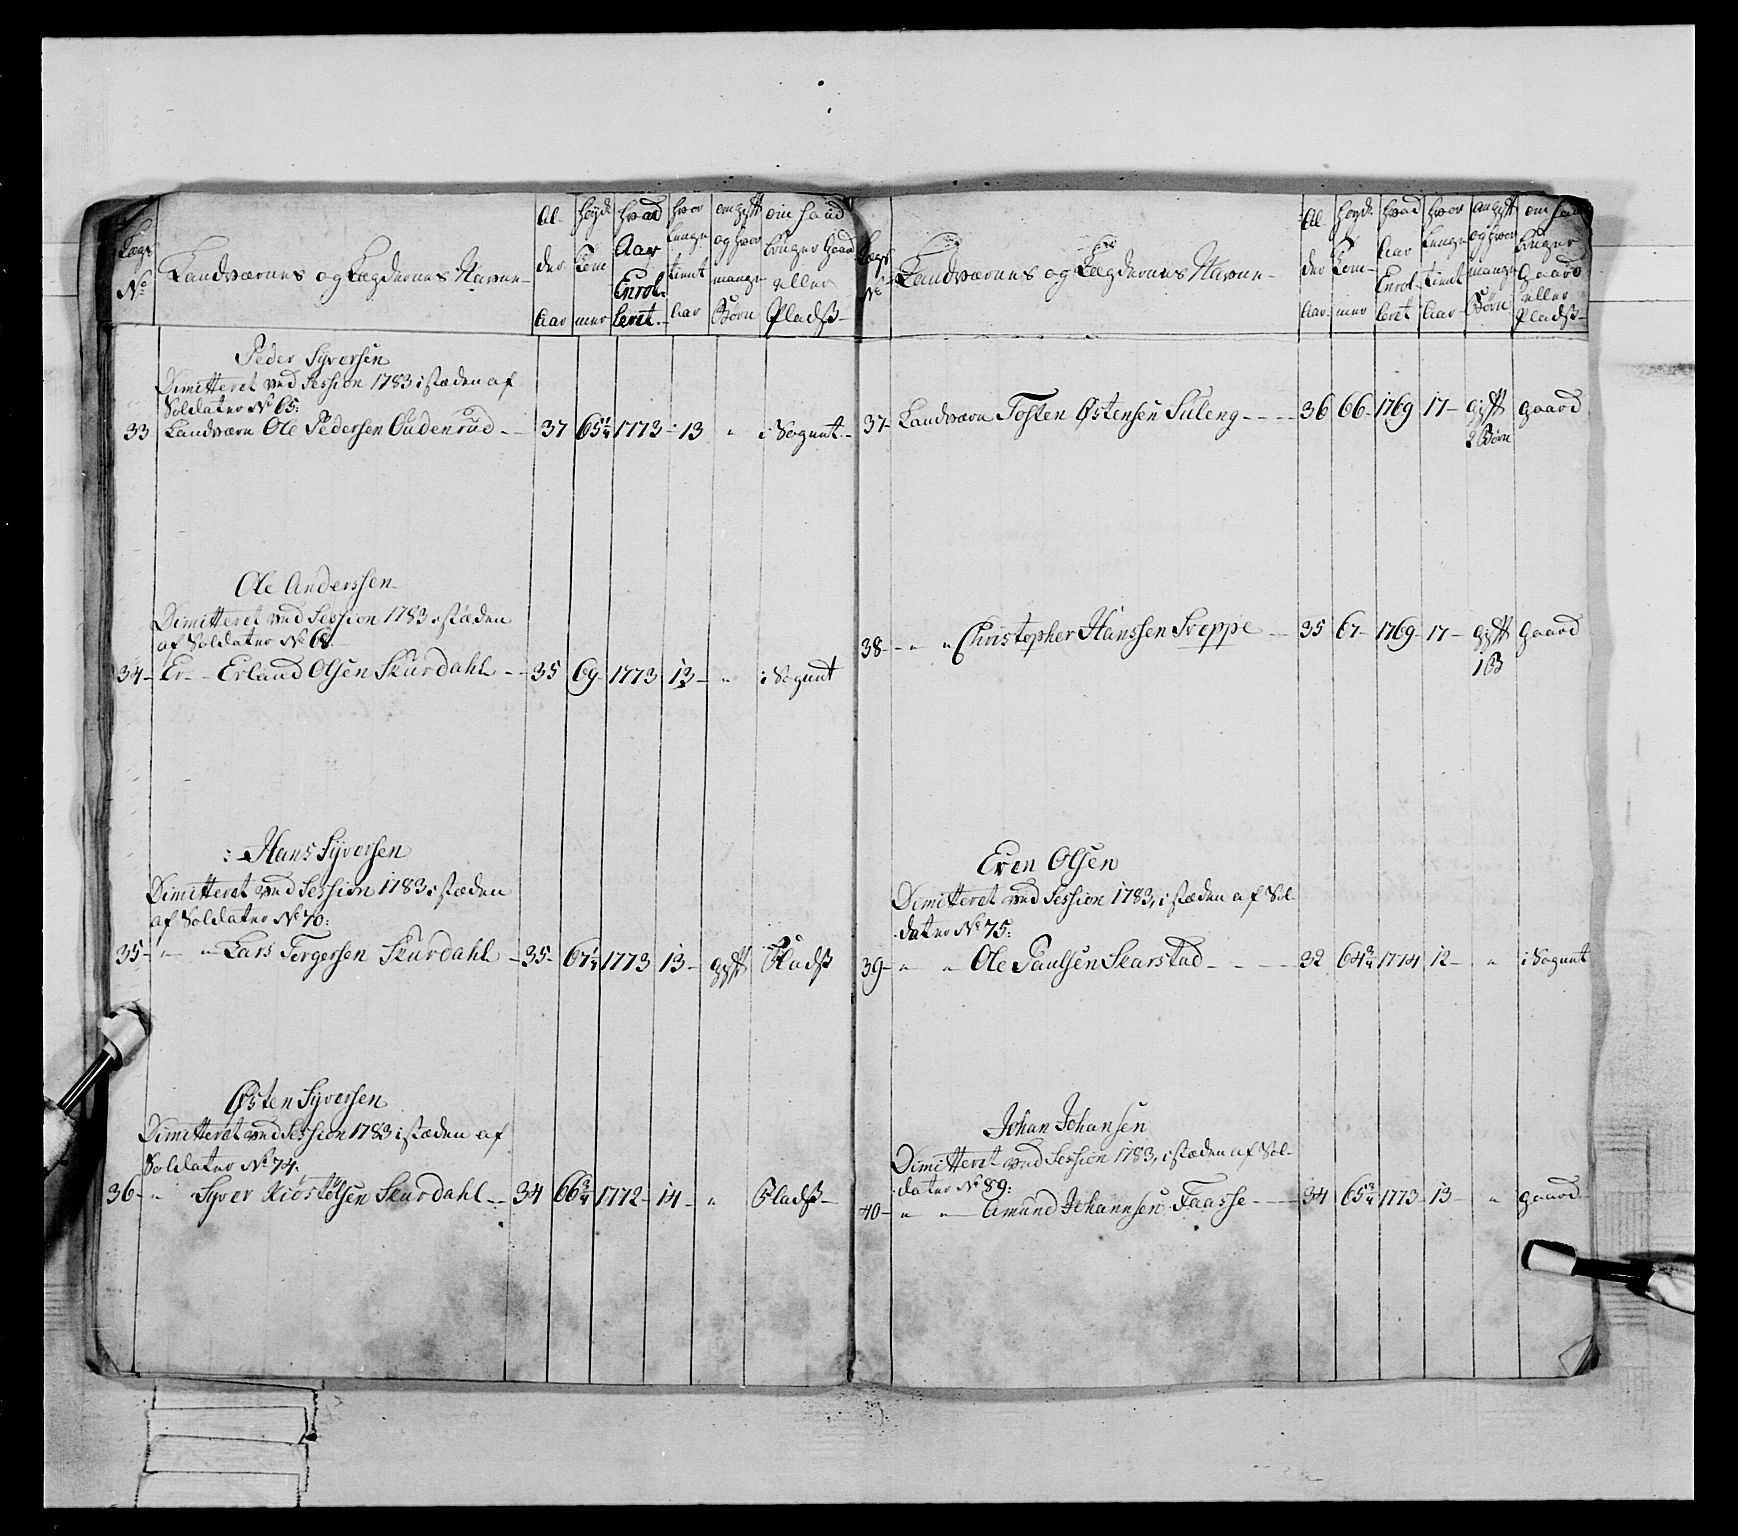 Lægs No
Landværnes og Lægdernes Navne
Al- der Aar
Høyde Tommer
Hvad Aar Enrolleret
Hvor lenge tient Aar
om gift og hvor mange Børn
om hand bruger Gaard eller Pladß
Peder Syversen
Dimitteret ved Session 1783 i stæden af
Soldater No 65:
33 Landværn Ole Pedersen Oudenrud 37 65 1/4 1773 13 " i Sognet
Ole Anderssen
Dimitteret ved Session 1783 i stæden
af Soldater No 68
34 Er Erland Olsen Skurdahl 35 69 1773 13 " i Sognet
Hans Syversen
Dimitteret ved Session 1783 i stæden
af Soldater No 70:
35 " " Lars Torgersen Skurdahl 35 67 1/4 1773 13 gift Pladß
Østen Syversen
Dimitteret ved Session 1783 i stæden af
Soldater No 74:
36 " Syver Kiøstolsen Skurdahl 34 66 3/4 1772 14 " Pladß
Lægs No
Landværnes og Lægdernes Navne
Al der Aar
Høyde Tommer
Hvad Aar Enrolleret
Hvor lenge tient Aar
om gift og hvor mange Børn
om hand bruger Gaard eller Pladß
37 Landværn Tosten Østensen Suleng 36 66 1769 17 gift gaard
2 Børn
38 " " Christopher Hanssen 35 67 1769 17 gift Gaard
1 B
Even Olsen
Dimitteret ved Session 1783, i stæden af Sol-
dater No 75:
39 " " Ole Paulsen Skarstad 32 64 3/4 1774 12 " i Sognet
Johan Johansen
Dimitteret ved Session 1783, i stæden af Sol-
dater No 89:
40 " " Amund Johannsen Faasse 34 65 3/4 1773 13 " gaard